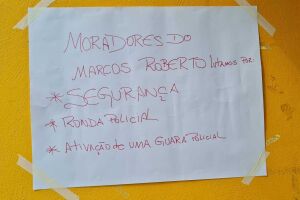 MORADORES DO
MARCOS ROBERTO LUTAMOS POR:
* SEGURANÇA
* RONDA POLICIAL
* ATIVAÇÃO DE UMA GUARA POLICIAL